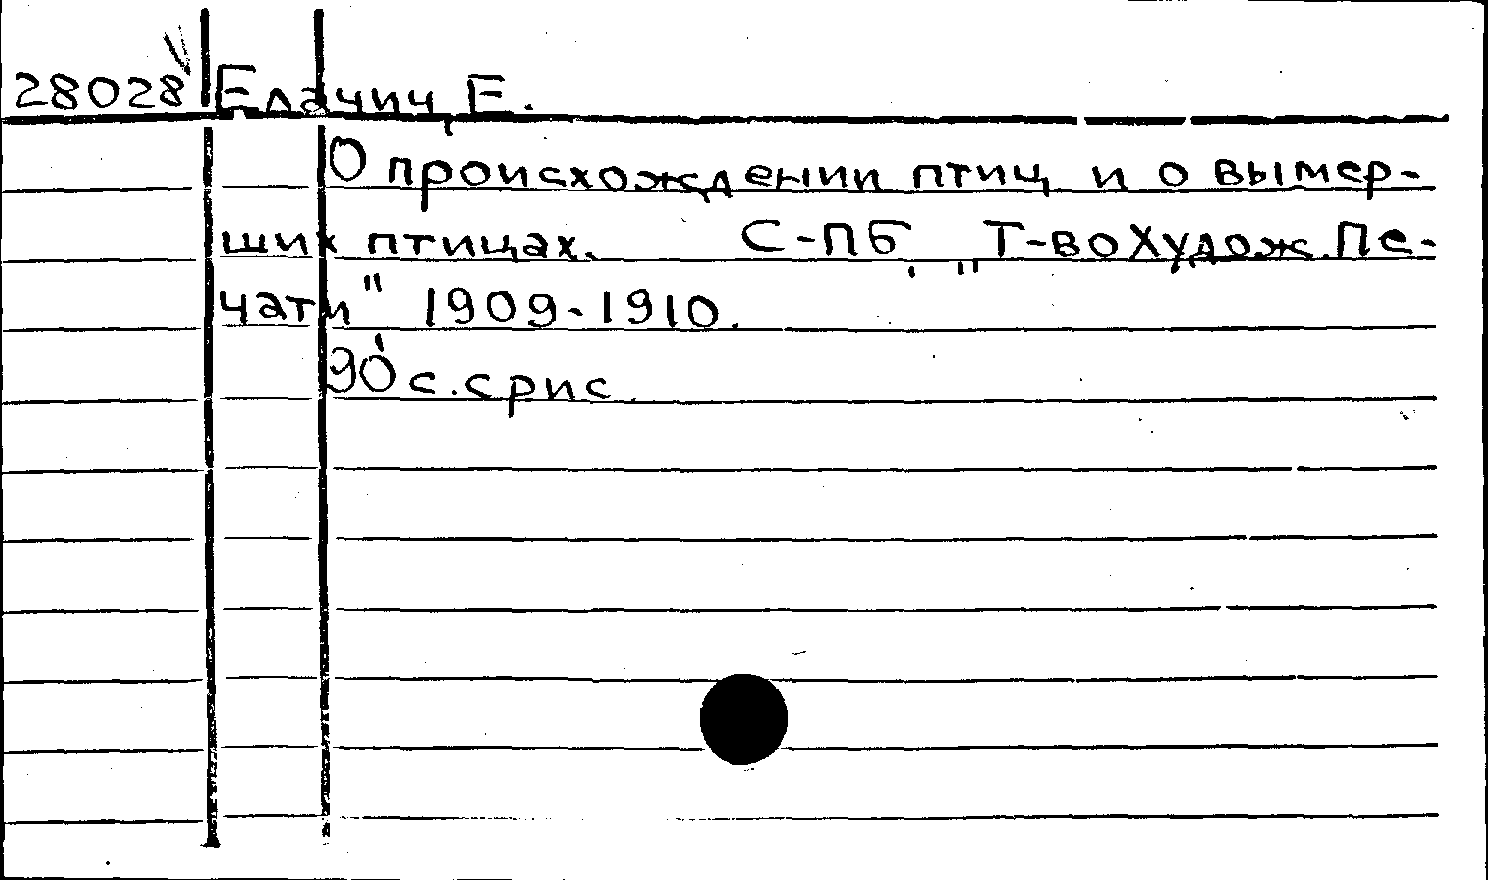 28028 Елачич, Е.
О происхождении птиц и о вымер-
ших птицах. С-ПБ, „Т-во Худож. Пе-
чати" 1909-1910.
90 с. с рис.